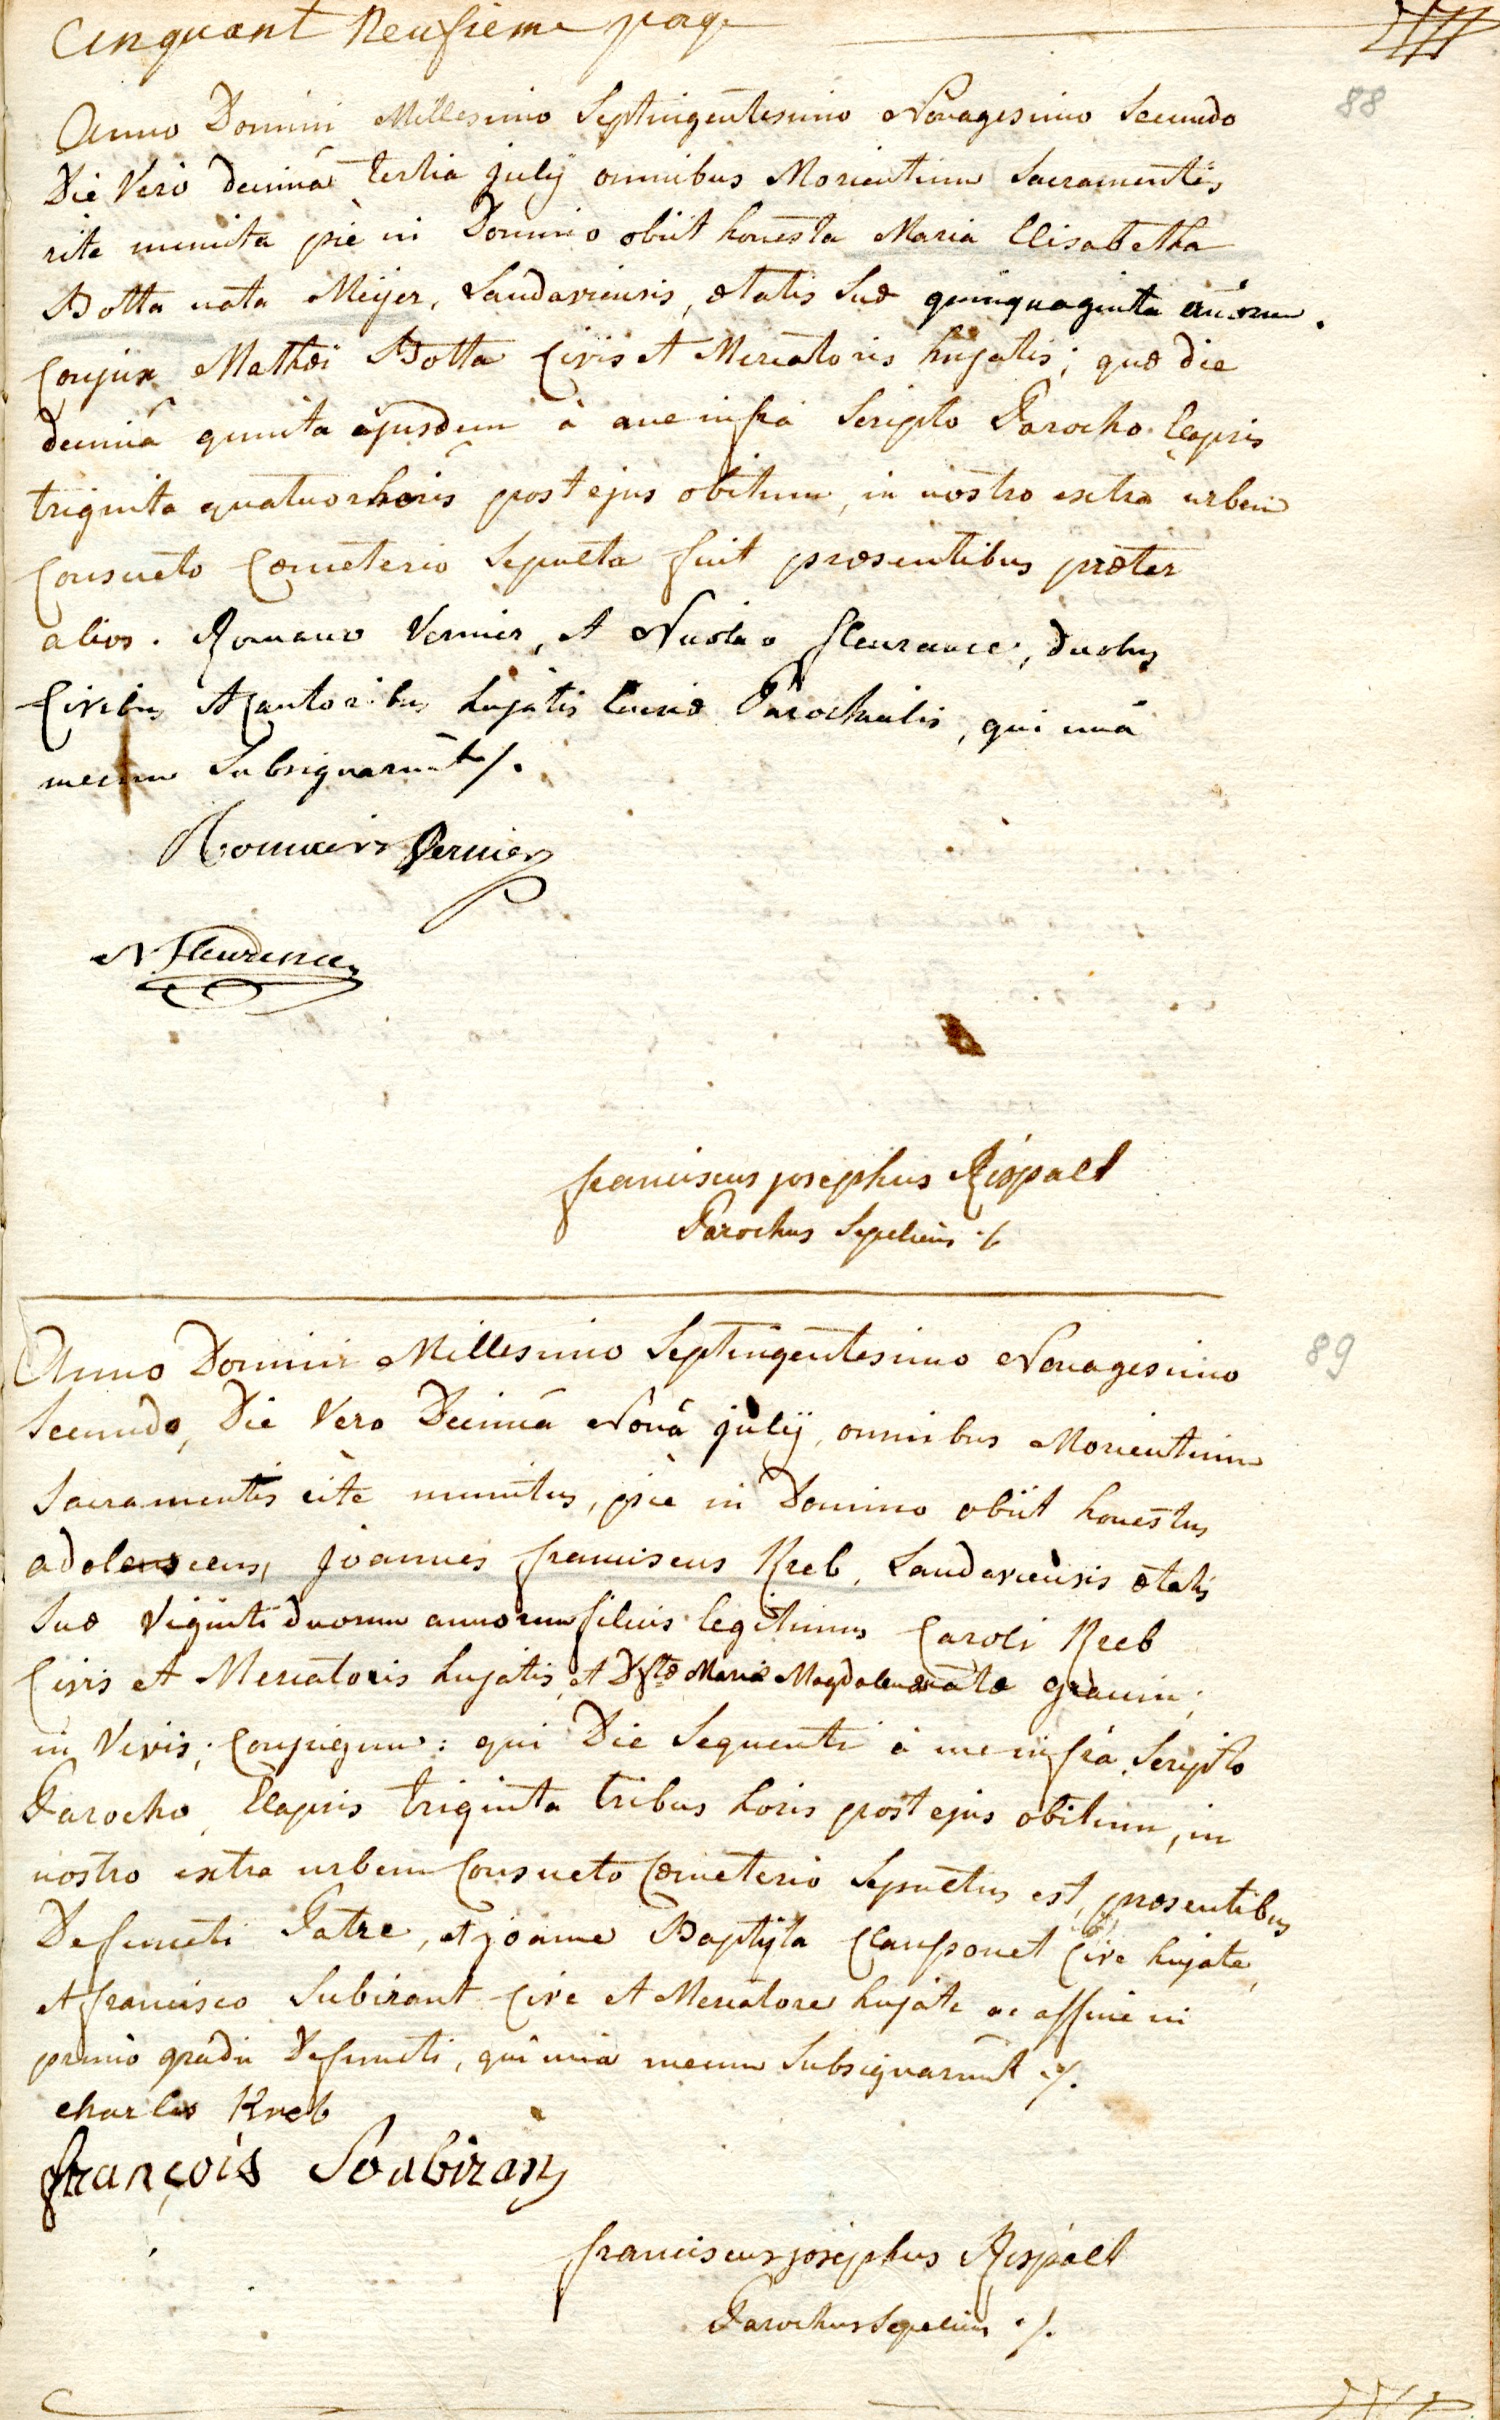 Cinquant Neufieme page
88
Anno Domini Millesimo Septingentesimo Nonagesimo Secundo
Die Vero decimâ tertia julÿ omnibus Morientium Sacramentis
rite munita piè in Domino obiit honesta Maria Elisabetha
Botta nata Meÿer, Landaviensis, ætatis Suæ quinquaginta añorum.
Conjux Mathæi Botta Civis et Mercatoris hujatis; quæ die
decimâ quinta ejusdem à me infrà Scripto Parocho Elapsis
triginta quatuor horis post ejus obitum, in nostro extra urbem
Consueto Cœmeterio Sepulta fuit præsentibus præter
alios. Romano Vernier, et Nicolao fleurance, duobus
Civibus et Cantoribus hujatis Curiæ Parochialis, qui unà
mecum Subsignarunt ./.
Romain Vernier
N Fleurence
franciscus josephus Rispalt
Parochus Sepeliens ./.
89
Anno Domini Millesimo Septingentesimo Nonagesimo
Secundo, Die Vero Decimâ Nonâ julÿ, omnibus Morientium
Sacramentis ritè munitus, piè in Domino obiit honestus
adolescens, joannes franciscus Kreb, Landaviensis ætatis
Suæ Viginti duorum annorum filius legitimus Caroli Kreb
Civis et Mercatoris hujatis, et Dftæ Mariæ Magdalenæ natæ
in Vivis; Conjugum: qui Die Sequenti à me infrà Scripto
Parocho, Elapsis triginta tribus horis post ejus obitum, in
nostro extra urbem Consueto Cœmeterio Sepultus est, præsentibus
Defuncti Patre, et joanne Baptista Clausonet Cive hujate,
et francisco Subirant Cive et Mercatore hujate ac affine in
primo gradu Defuncti, qui unà mecum Subsignarunt ./.
charles Kreb
françois Soubiran
franciscus josephus Rispalt
Parochus Sepeliens ./.